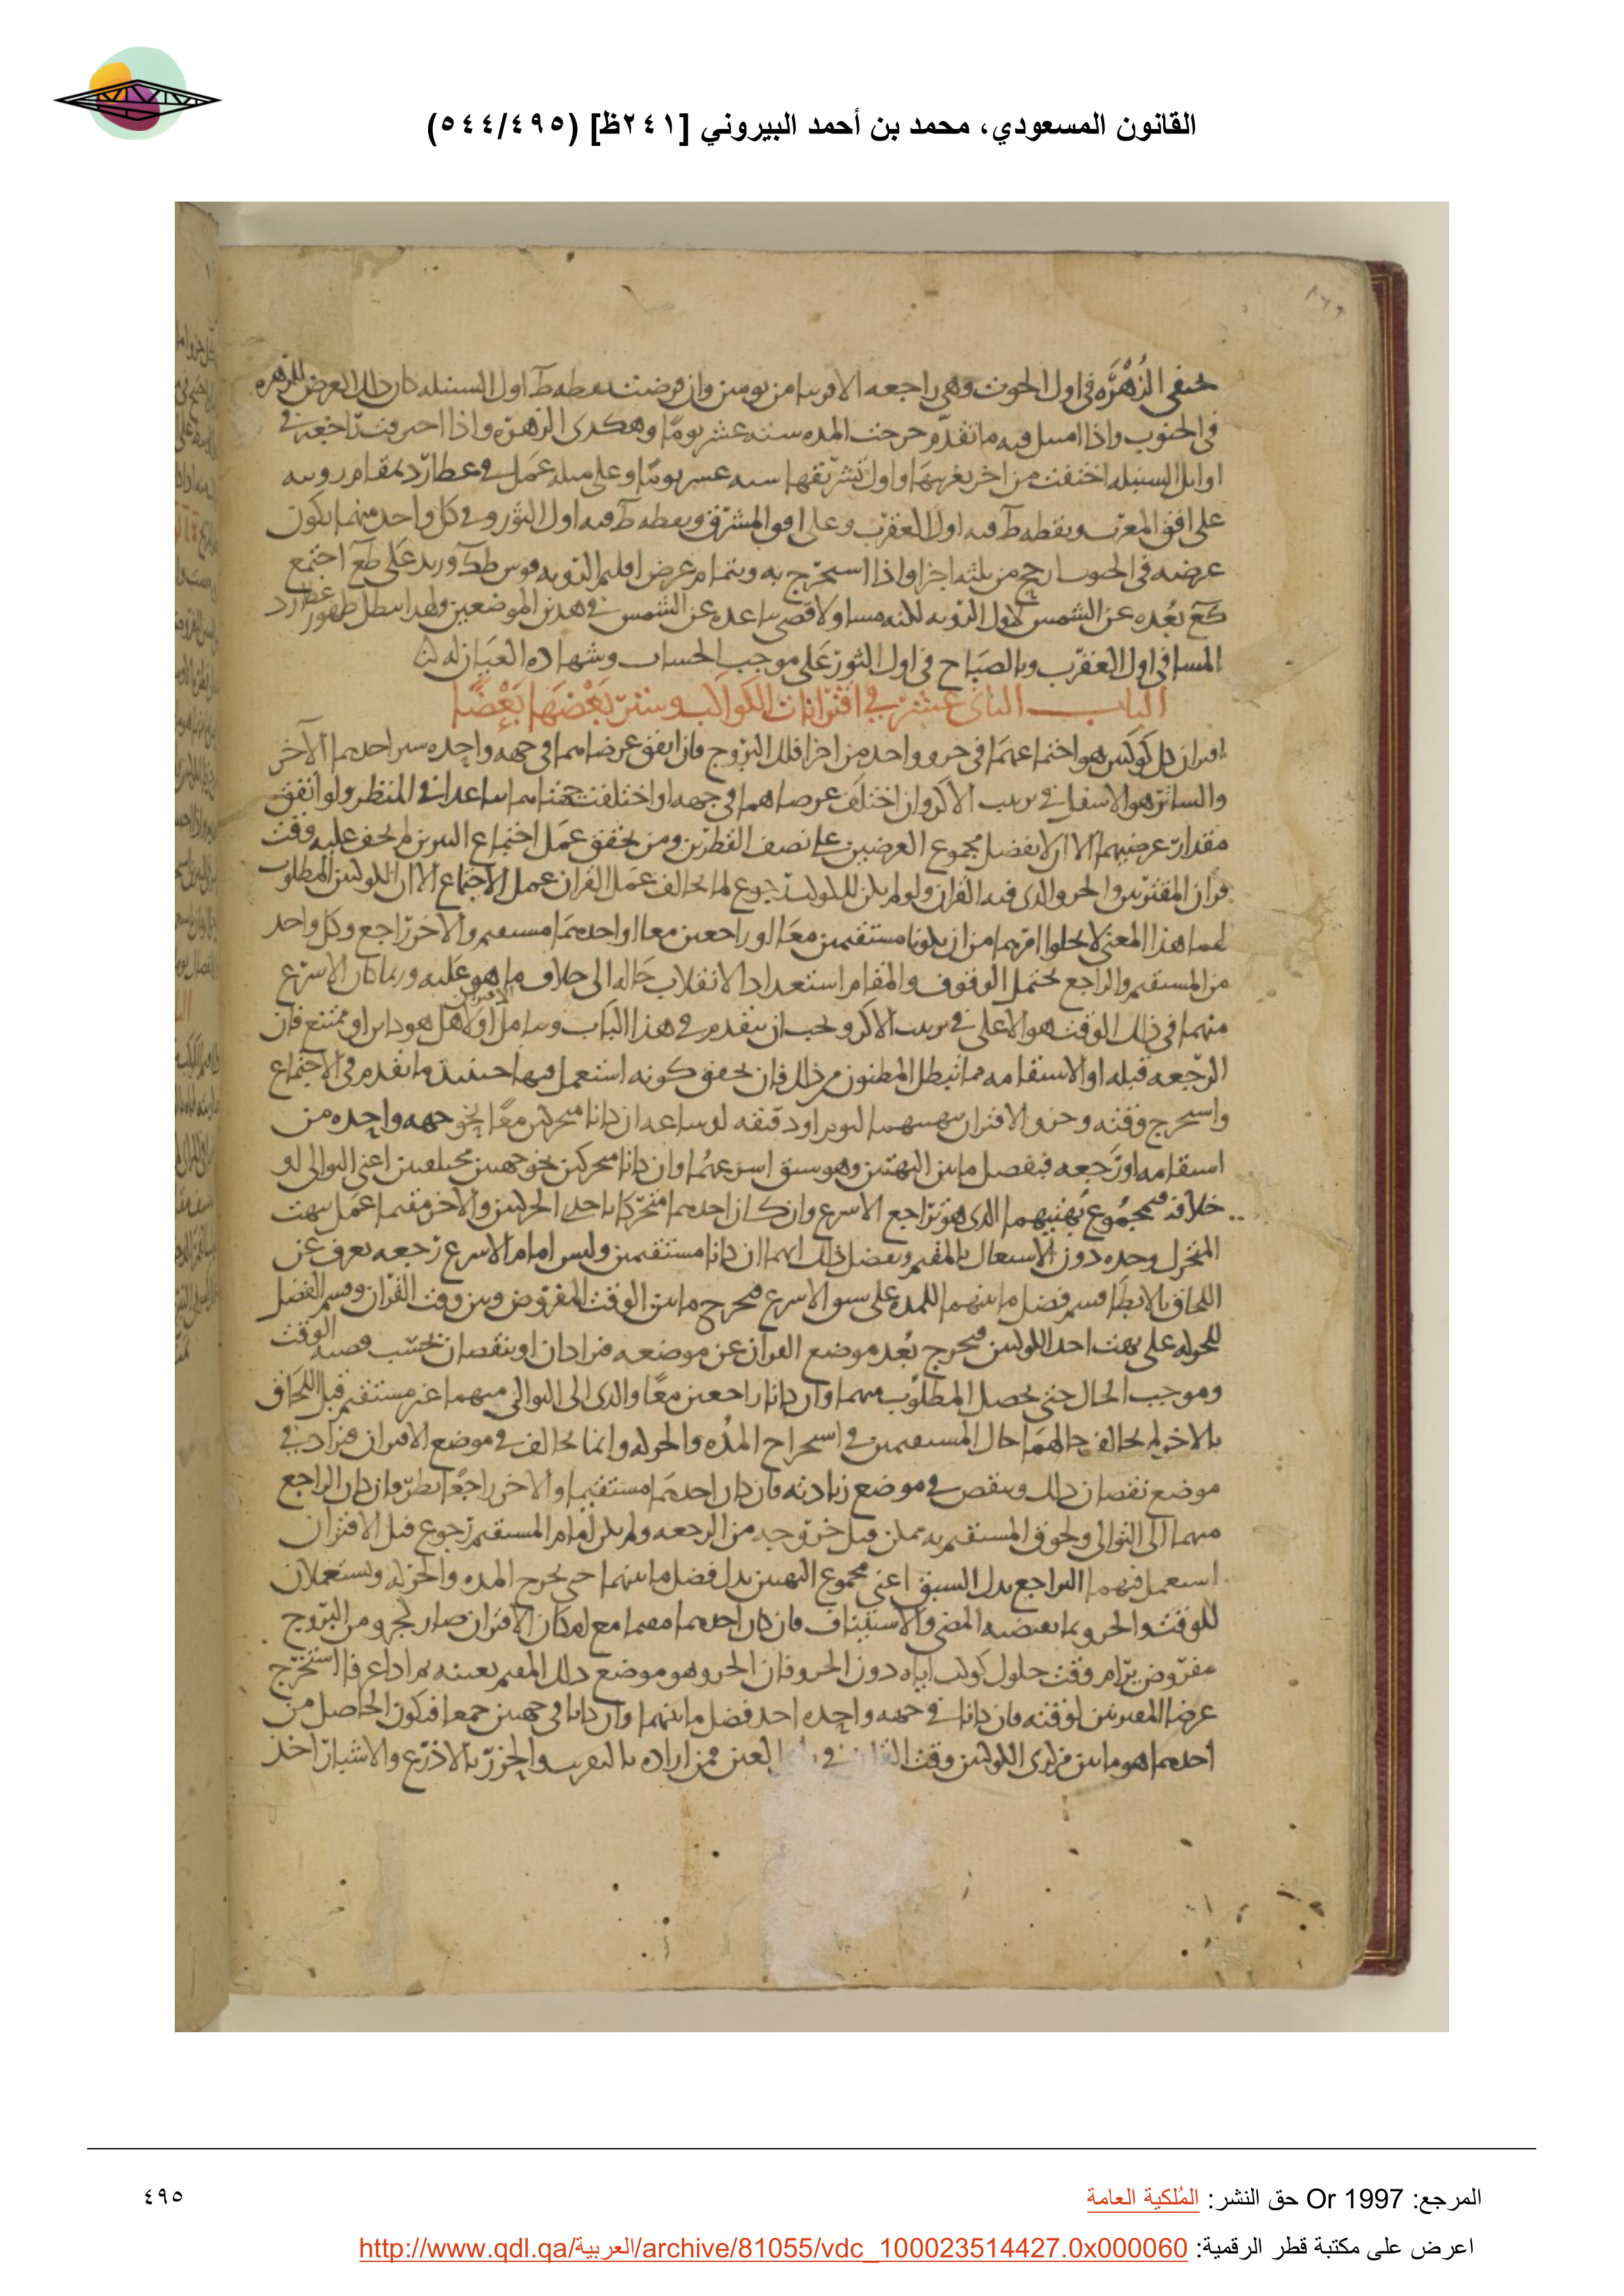 القانون المسعودي، محمد بن أحمد البيروني [٢٤١ظ] (٥٤٤/٤٩٥)
تختفي الزُهْرَه في اول الحوت وهي راجعه الا قريبا من يومين وان فرضت نقطه ط اول السنبله كان ذلك العرض للزهره
في الجنوب واذا امتثل فيه ما تقدّم خرجت المده سته عشر يومًا وهكذى الزهره واذا احترقت راجعه في
اوايل السنبله اختفت من اخر تغريبها واول تشريقها سته عشر يومًا وعلى مثله عمل في عطارد بمقام رويته
على افق المغرب ونقطه ط فيه اول العقرب وعلى افق المشرق ونقطه ط فيه اول الثور وفي كل واحد منهما يكون
عرضه في الجنوب من ثلثه اجزا واذا استخرج به وبتمام عرض اقليم الرويه قوس طك وزيد على طع اجتمع
كع بُعده عن الشمس لاول الرويه لكنه مساو لاقصى تباعده عن الشمس في هذين الموضعين ولهذا يبطل ظهور عطارد
المسا في اول العقرب وبالصباح في اول الثور على موجب الحساب وشهاده العيان له
الباب الثاني عشر في اقترانات الكواكب وستر بعضها بعضًا
اقتران كل كوكبين هو اجتماعهما في جزو واحد من اجزا فلك البروج فان اتفق عرضاهما في جهه واحده ستر احدهما الآخر
والساتر هو الاسفل في ترتيب الاكر وان اختلف عرضاهما في جهه او اختلفت جهتاهما تباعدا في المنظر ولو اتفق
مقدارا عرضيهما الا ان لا يفضل مجموع العرضين على نصف القطرين ومن تحقق عمل اجتماع النيرين لم يخف عليه وقت
قران المقترنين والجزو الذى فيه القران ولو لم يكن للكواكب رجوع لما خالف عمل القران عمل الاجتماع الا ان الكوكبين المطلوب
لهما هذا المعنى لا يخلوا امرهما من ان يكونا مستقيمين معا او راجعين معا او احدهما مستقيم والاخر راجع وكل واحد
من المستقيم والراجع يحتمل الوقوف والمقام استعدادا لانقلاب حاله الى خلاف ما هو عليه وربما كان الاسرع
منهما في ذلك الوقت هو الاعلى في ترتيب الاكر ويجب ان يتقدم في هذا الباب ويتامل اولا الاقتران هل هو كاين او ممتنع فان
الرجعه قبله او الاستقامه مما تبطل المظنون من ذلك فان تحقق كونه استعمل فيها حينيذ ما تقدم في الاجتماع
واستخرج وقته وجزو الاقتران ببهتيهما ليوم او دقيقه او ساعه ان كانا متحركين معًا نحو جهه واحده من
استقامه او رجعه فبفضل ما بين البهتين وهو سبق اسرعهما وان كانا متحركين نحو جهتين مختلفتين اعني التوالى او
خلافه فبمجموع بُهتيهما الذى هو تراجع الاسرع وان كان احدهما متحركا باحدى الحركتين والاخر مقيما عمل ببهت
المتحرك وحده دون الاشتغال بالمقيم وبفضل ذلك انهما ان كانا مستقيمين وليس امام الاسرع رجعه تعرف عن
اللحاق بالابطا قسم فضل ما بينهما للمده على سبق الاسرع فيخرج ما بين الوقت المفروض وبين وقت القران وقسم الفضل
للحركه على بهت احد الكوكبين فيخرج بُعد موضع القران عن موضعه فيزادان او ينقصان بحسب قضيه الوقت
وموجب الحال حتى يحصل المطلوب منهما وان كانا راجعين معًا والذى الى التوالى منهما غير مستقيم قبل اللحاق
بالاخر لم يخالف حالهما حال المستقيمين في استخراج المدُه والحركه وانما يخالف في موضع الاقتران فيزاد في
موضع نقصان ذلك وينقص في موضع زيادته فان كان احدهما مستقيما والاخر راجعًا نظر فان كان الراجع
منهما الى التوالى ولحوق المستقيم به ممكن قبل خروجه من الرجعه ولم يكن امام المستقيم رجوع قبل الاقتران
استعمل فيهما التراجع بدل السبق اعنى مجموع البهتين بدل فضل ما بينهما حتى يخرج المده والحركه ويستعملان
للوقت والجزو بما يقتضيه المضى والاستيناف فان كان احدهما مقيما مع امكان الاقتران صار لجزو من البروج
مفروض يرام وقت حلول كوكب اياه دون الجزو فان الجزو هو موضع ذلك المقيم بعينه ثم اذا عرفا استخرج
عرضا المقترنين لوقته فان كانا في جهه واحده اخذ فضل ما بينهما وان كانا في جهتين جمعا فيكون الحاصل من
احدهما هو ما بين مركزى الكوكبين وقت القران في العين فمن اراده بالتقريب والحزر بالاذرع والاشبار اخذ
المرجع: Or 1997 حق النشر: المُلكية العامة
٤٩٥
اعرض على مكتبة قطر الرقمية: http://www.qdl.qa/العربية/archive/81055/vdc_100023514427.0x000060